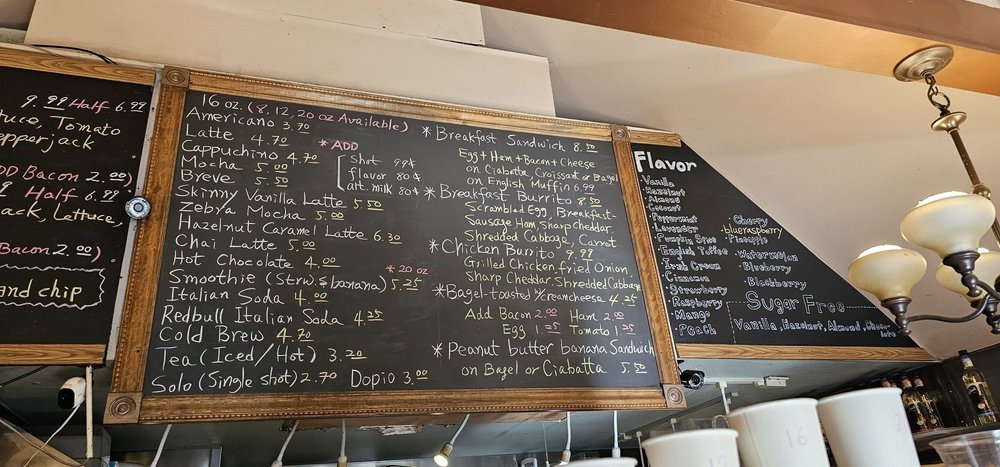 9.99 Half 6.99
Tomato
ADD Bacon 2.00)
Half 6.99
Lettuce,
Bacon 2.00)
and chip
16 oz. (8, 12, 20 oz Available)
Americano 3.70
Latte 4.70
Cappuchino 4.70
Mocha 5.00
Breve 5.50
* ADD
shot 99¢
flavor 80¢
alt. milk 80¢
Skinny Vanilla Latte 5.50
Zebra Mocha 5.00
Hazelnut Caramel Latte 6.30
Chai Latte 5.00
Hot Chocolate 4.00
* 20 oz
Smoothie (Strw. & banana) 5.25
Italian Soda 4.00
Redbull Italian Soda 4.25
Cold Brew 4.70
Tea (Iced/Hot) 3.20
Solo (Single shot) 2.70 Dopio 3.00
* Breakfast Sandwich 8.50
Egg + Ham + Bacon + Cheese
on Ciabatta, Croissant or Bagel
on English Muffin 6.99
* Breakfast Burrito 8.50
Scrambled Egg, Breakfast-
Sausage, Ham, Sharp Cheddar,
Shredded Cabbage, Carrot
* Chicken Burrito 9.99
Grilled Chicken, fried Onion
Sharp Cheddar, Shredded Cabbage
* Bagel-toasted w/creamcheese 4.25
Add Bacon 2.00 Ham 2.00
Egg 1.25 Tomato 1.25
* Peanut butter banana Sandwich
on Bagel or Ciabatta 5.50
Flavor
· Vanilla
· Hazelnut
· Almond
· Coconut
· Peppermint
· Lavender
· Pumpkin Spice
· English Toffee
· Irish Cream
· Cinnamon
· Strawberry
· Raspberry
· Mango
· Peach
· Cherry
· blueraspberry
· Pineapple
· Watermelon
· Blueberry
· Blackberry
Sugar Free
Vanilla, Hazelnut, Almond, Choco-
late
16